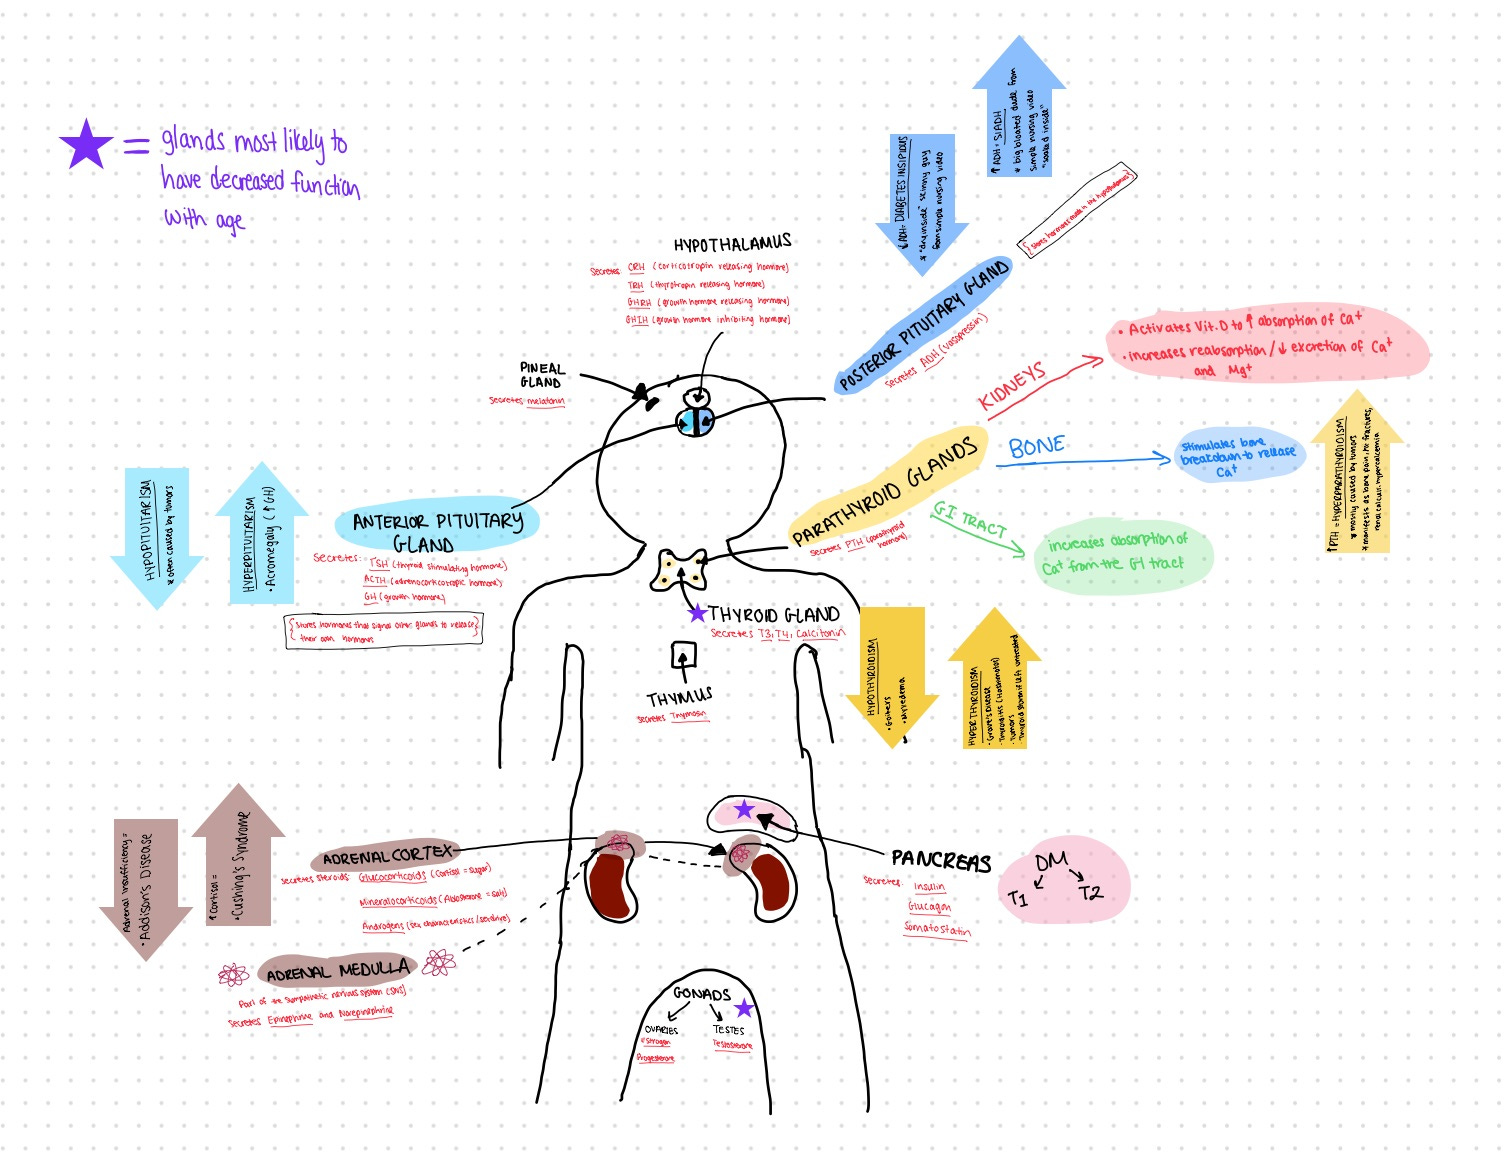 ★ = glands most likely to
have decreased function
with age
↑ADH = SIADH
* big bloated dude from
simple nursing video
"soaked inside"
↓ADH = DIABETES INSIPIDUS
* "dry inside" skinny guy
from simple nursing video
{stores hormones made in the hypothalamus}
HYPOTHALAMUS
Secretes: CRH (corticotropin releasing hormone)
TRH (thyrotropin releasing hormone)
GHRH (growth hormone releasing hormone)
GHIH (growth hormone inhibiting hormone)
POSTERIOR PITUITARY GLAND
Secretes ADH (vasopressin)
PINEAL
GLAND
Secretes melatonin
KIDNEYS
• Activates Vit. D to ↑ absorption of Ca+
• increases reabsorption / ↓ excretion of Ca+
and Mg+
PARATHYROID GLANDS
Secretes PTH (parathyroid
hormone)
BONE
Stimulates bone
breakdown to release
Ca+
GI TRACT
increases absorption of
Ca+ from the GI tract
↑PTH = HYPERPARATHYROIDISM
* mostly caused by tumors
* manifests as bone pain, fractures,
renal calculi, hypercalcemia
HYPOPITUITARISM
* often caused by tumors
HYPERPITUITARISM
• Acromegaly (↑GH)
ANTERIOR PITUITARY
GLAND
Secretes: TSH (thyroid stimulating hormone)
ACTH (adrenocorticotropic hormone)
GH (growth hormone)
{Stores hormones that signal other glands to release
their own hormones}
★ THYROID GLAND
Secretes T3, T4, Calcitonin
THYMUS
Secretes Thymosin
HYPOTHYROIDISM
• Goiters
• Myxedema
HYPERTHYROIDISM
• Grave's Disease
• Thyroiditis (Hashimotos)
• Tumors
• Thyroid storm if left untreated
Adrenal insufficiency =
• Addison's Disease
↑Cortisol =
• Cushing's Syndrome
ADRENAL CORTEX
Secretes steroids: Glucocorticoids (Cortisol = sugar)
Mineralocorticoids (Aldosterone = salt)
Androgens (sex characteristics / sex drive)
ADRENAL MEDULLA
Part of the Sympathetic nervous system (SNS)
Secretes Epinephrine and Norepinephrine
PANCREAS
Secretes: Insulin
Glucagon
Somatostatin
DM
T1 T2
GONADS
OVARIES TESTES
Estrogen Testosterone
Progesterone